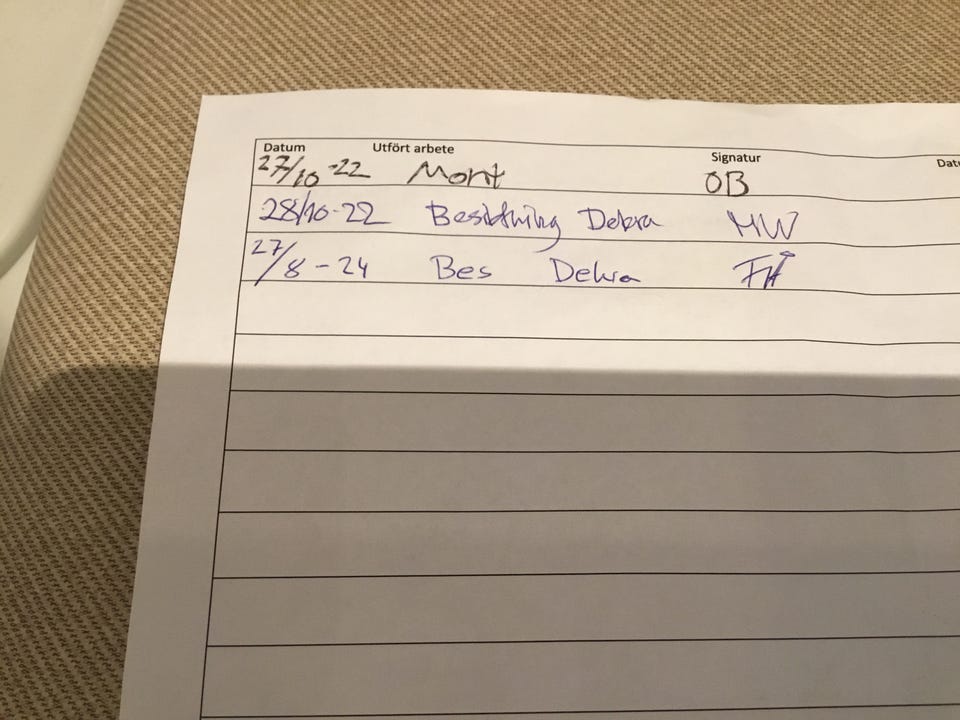 Datum Utfört arbete Signatur Dat
27/10-22 Mont OB
28/10-22 Besiktning Dekra MW
27/8-24 Bes Dekra FÅ